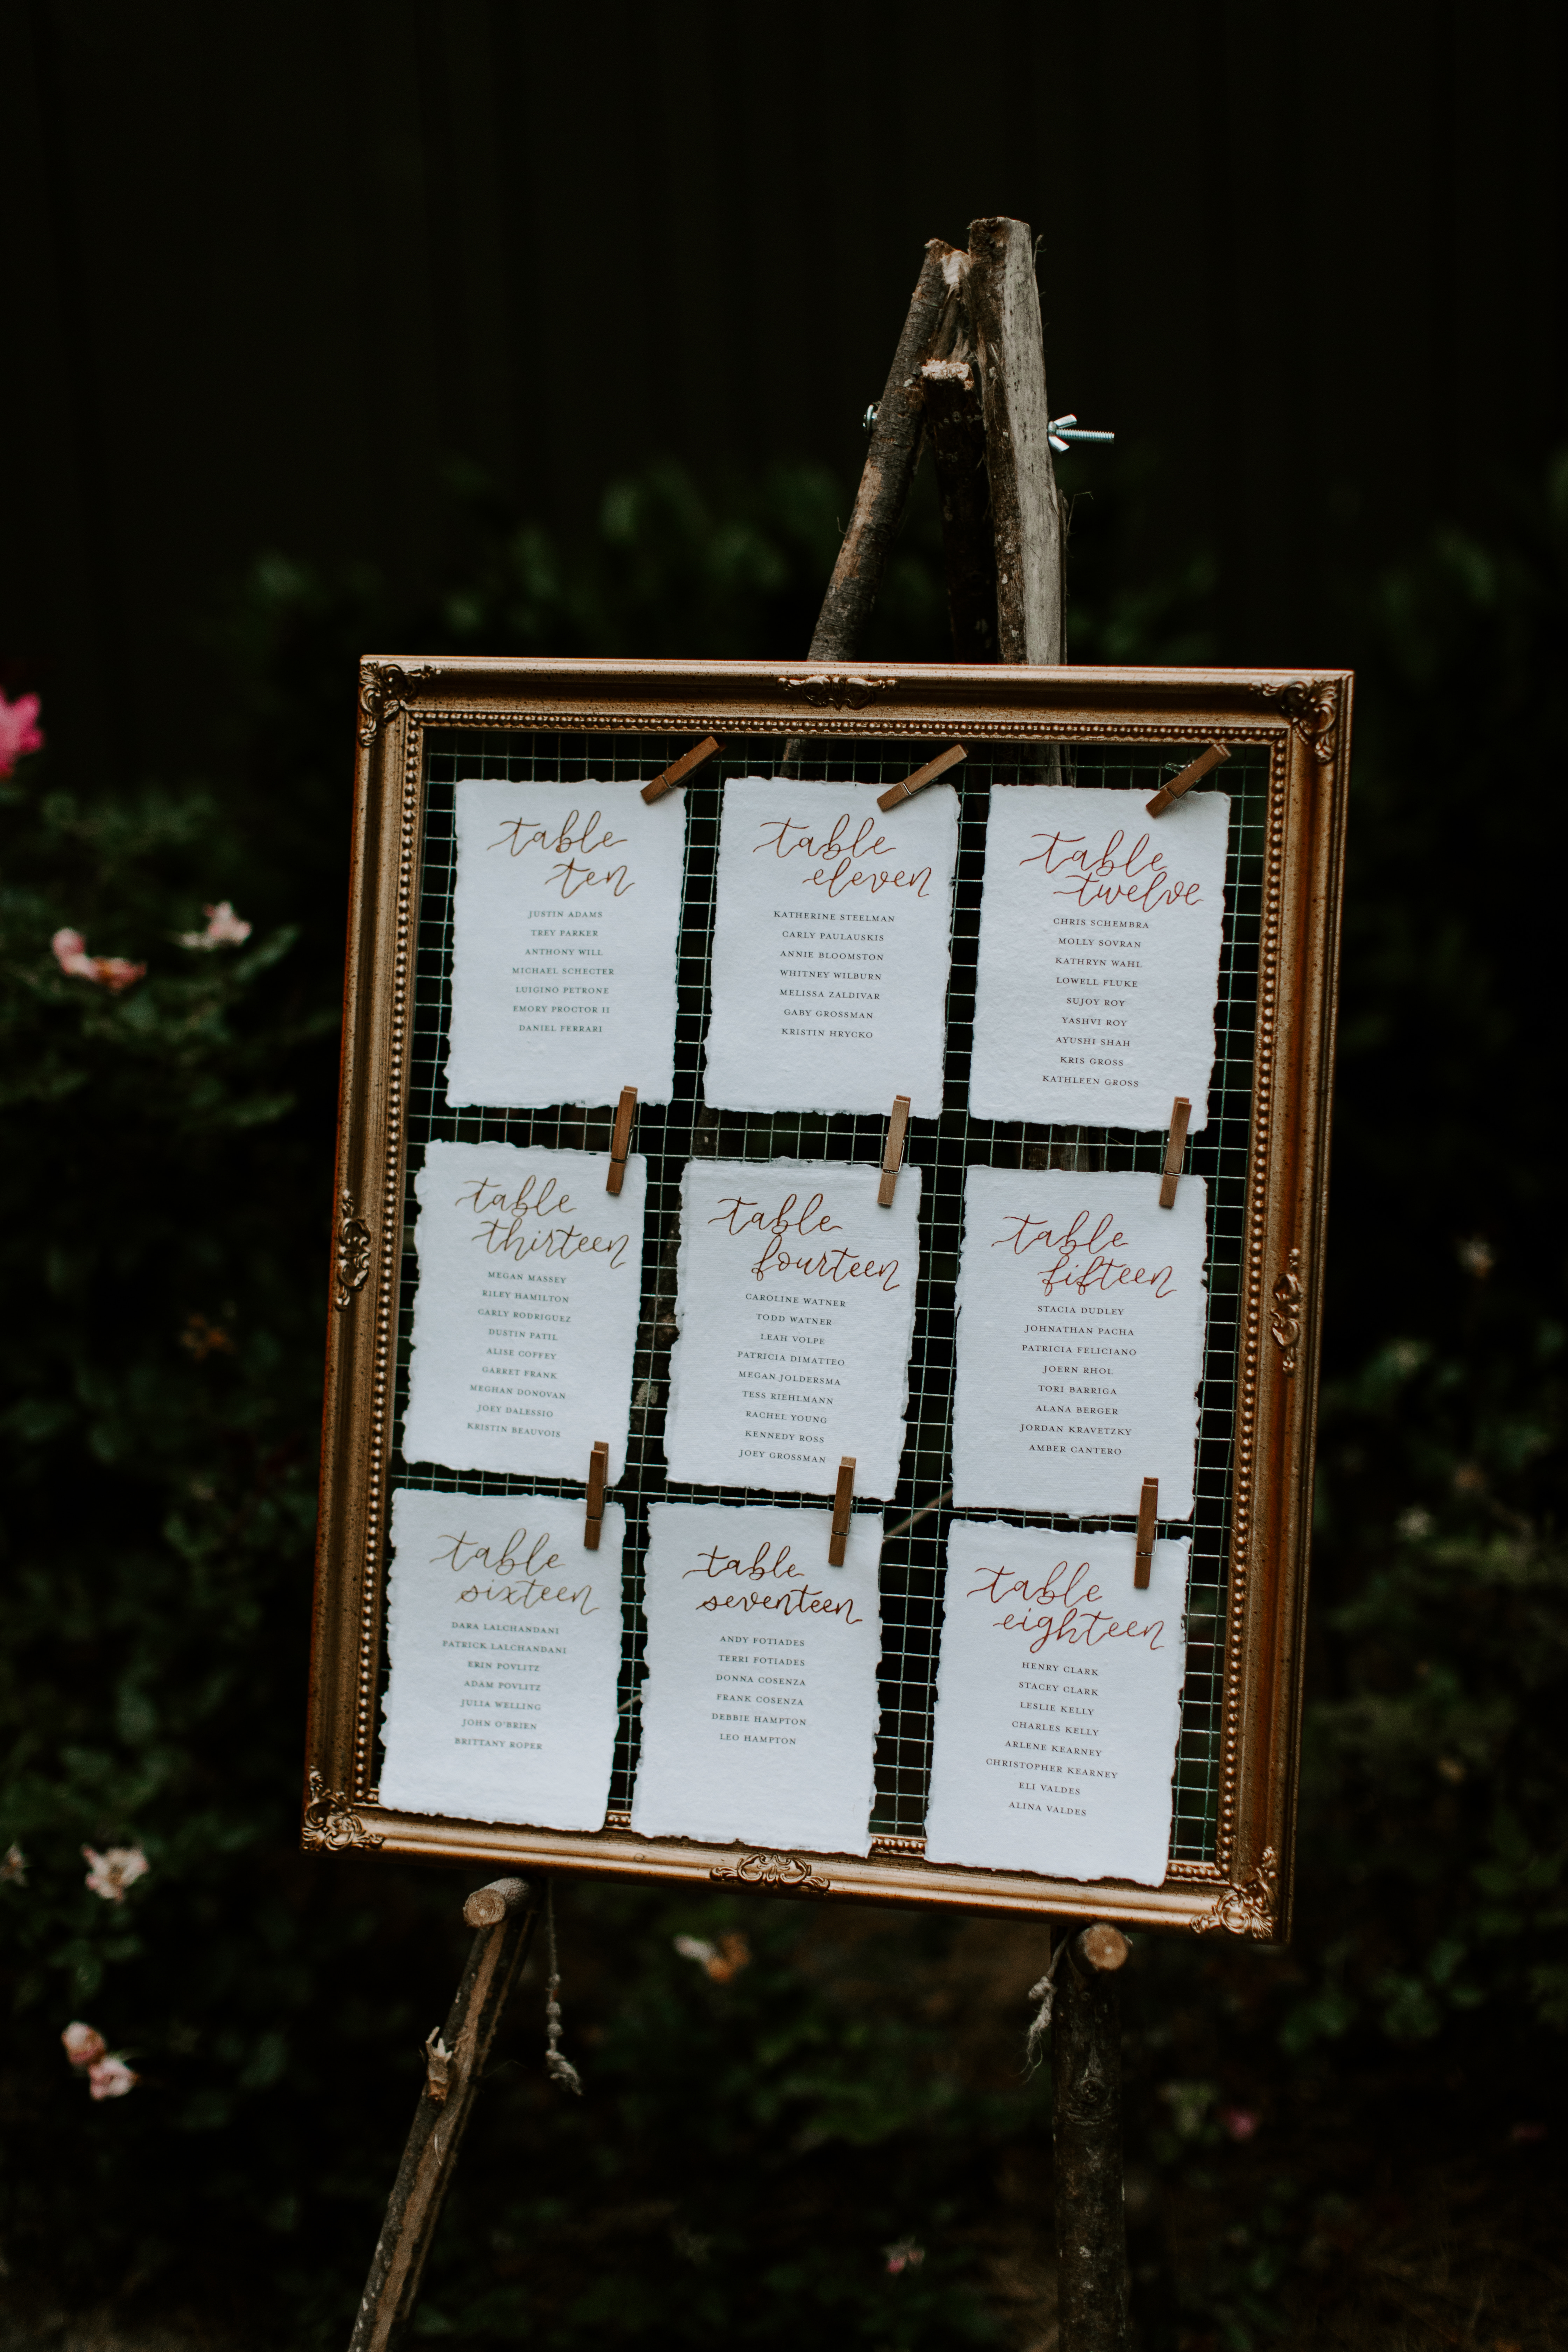 table
ten
JUSTIN ADAMS
TREY PARKER
ANTHONY WILL
MICHAEL SCHECTER
LUIGINO PETRONE
EMORY PROCTOR II
DANIEL FERRARI
table
eleven
KATHERINE STEELMAN
CARLY PAULAUSKIS
ANNIE BLOOMSTON
WHITNEY WILBURN
MELISSA ZALDIVAR
GABY GROSSMAN
KRISTIN HRYCKO
table
twelve
CHRIS SCHEMBRA
MOLLY SOVRAN
KATHRYN WAHL
LOWELL FLUKE
SUJOY ROY
YASHVI ROY
AYUSHI SHAH
KRIS GROSS
KATHLEEN GROSS
table
thirteen
MEGAN MASSEY
RILEY HAMILTON
CARLY RODRIGUEZ
DUSTIN PATIL
ALISE COFFEY
GARRET FRANK
MEGHAN DONOVAN
JOEY DALESSIO
KRISTIN BEAUVOIS
table
fourteen
CAROLINE WATNER
TODD WATNER
LEAH VOLPE
PATRICIA DIMATTEO
MEGAN JOLDERSMA
TESS RIEHLMANN
RACHEL YOUNG
KENNEDY ROSS
JOEY GROSSMAN
table
fifteen
STACIA DUDLEY
JOHNATHAN PACHA
PATRICIA FELICIANO
JOERN RHOL
TORI BARRIGA
ALANA BERGER
JORDAN KRAVETZKY
AMBER CANTERO
table
sixteen
DARA LALCHANDANI
PATRICK LALCHANDANI
ERIN POVLITZ
ADAM POVLITZ
JULIA WELLING
JOHN O'BRIEN
BRITTANY ROPER
table
seventeen
ANDY FOTIADES
TERRI FOTIADES
DONNA COSENZA
FRANK COSENZA
DEBBIE HAMPTON
LEO HAMPTON
table
eighteen
HENRY CLARK
STACEY CLARK
LESLIE KELLY
CHARLES KELLY
ARLENE KEARNEY
CHRISTOPHER KEARNEY
ELI VALDES
ALINA VALDES